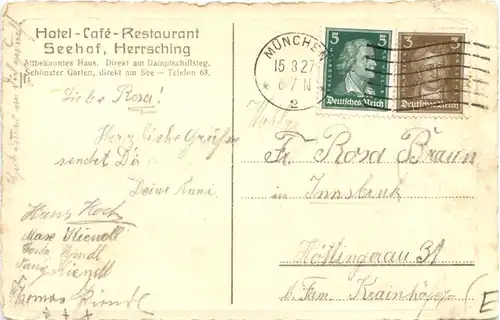 Hotel-Café-Restaurant
Seehof, Herrsching
Altbekanntes Haus. Direkt am Dampfschiffsteg.
Schönster Garten, direkt am See — Telefon 63.
Liebe Rosa!
Herzliche Grüße
sendet Dir
Deine
Hans Koch
Max Kiendl
Kiendl
Kiendl
Thomas Kiendl
MÜNCHEN
15 8 27
6-7 N
2
5 5
Deutsches Reich
3 3
Deutsches Reich
Fr. Rosa Braun
in Innsbruck
Höttingerau 31
b. Fam. Krainhöfer
E